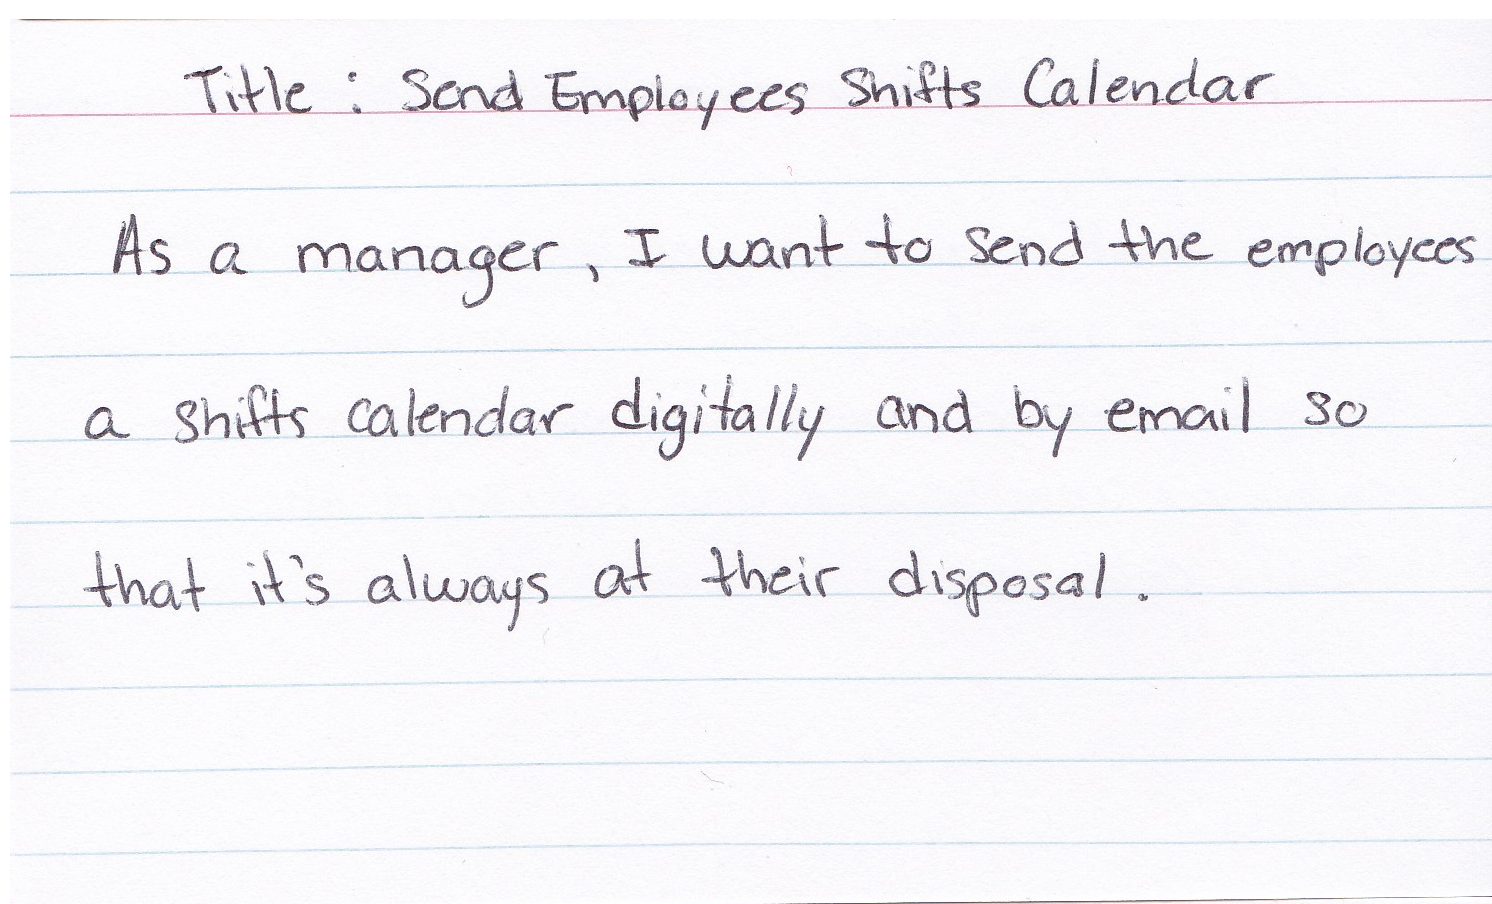 Title : Send Employees Shifts Calendar
As a manager, I want to send the employees
a shifts calendar digitally and by email so
that it's always at their disposal.